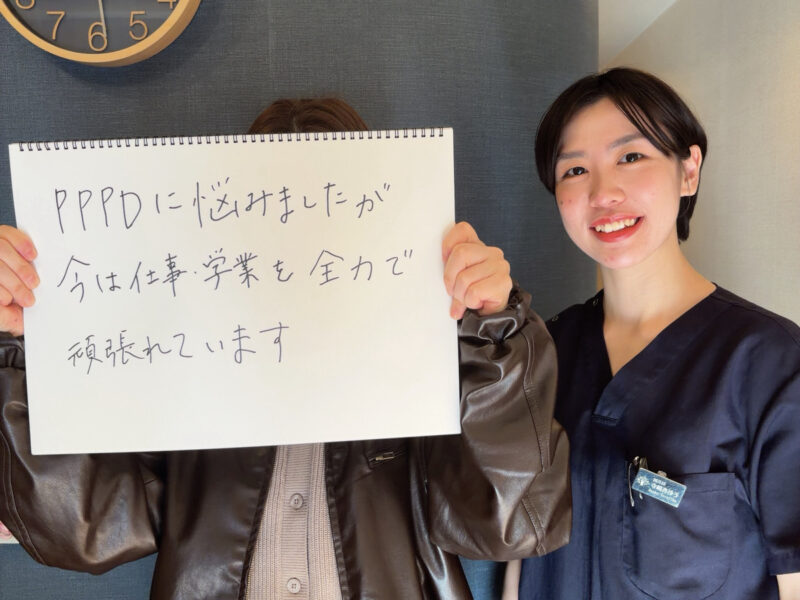 PPPDに悩みましたが
今は仕事・学業を全力で
頑張れています
7 6 5